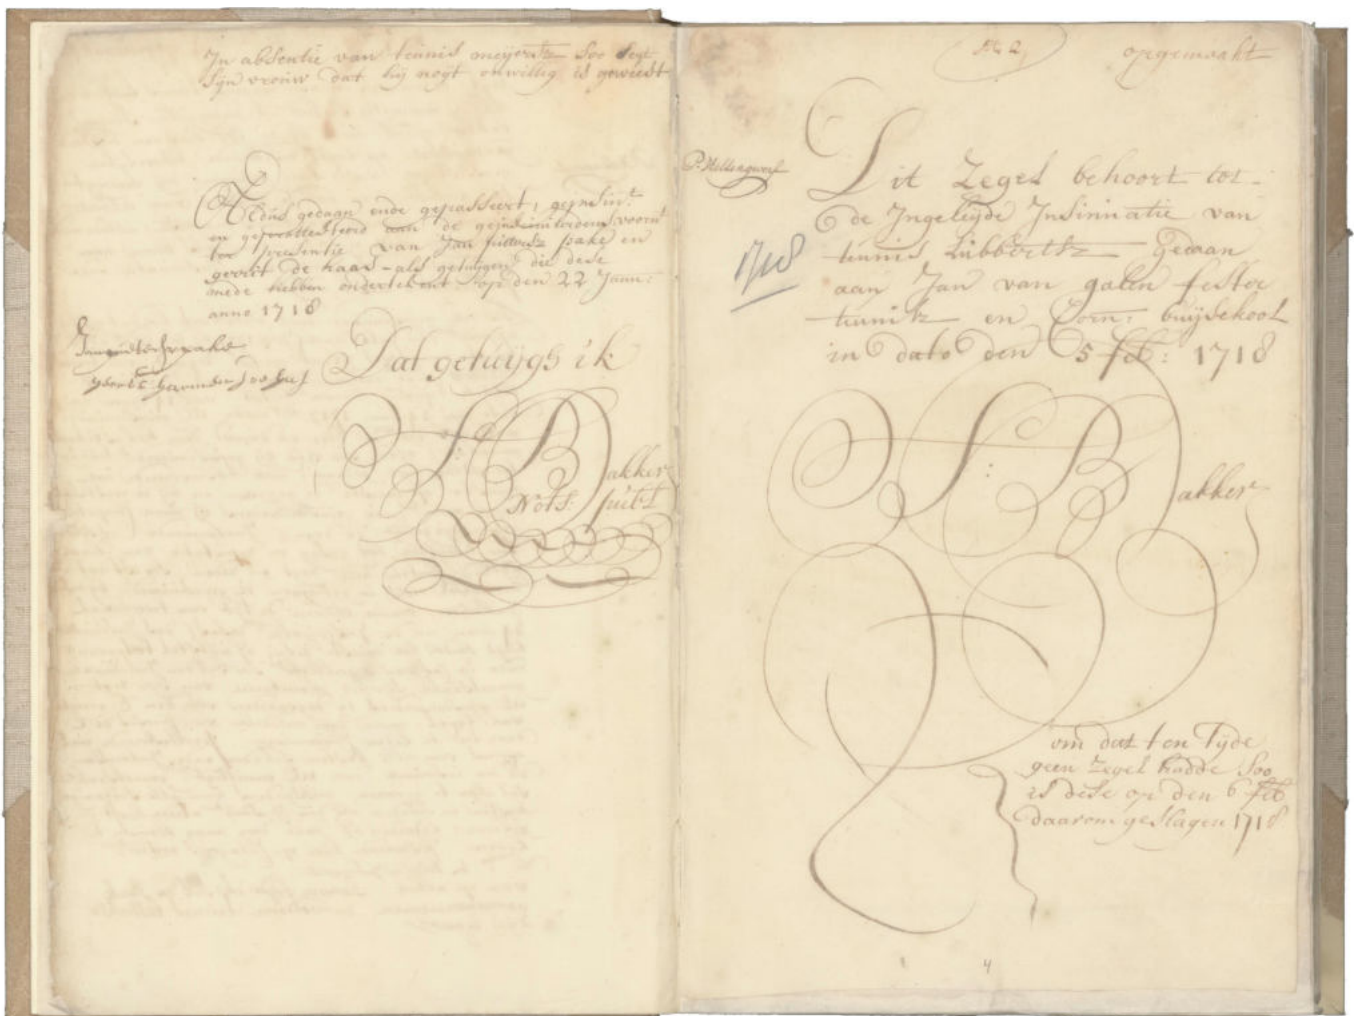 In absentie van teunis meijertsz Soo segt
sijn vrouw dat hij noijt onwillig is geweest
Aldus gedaan ende gepasseert, geinsin:t
en geprotesteerd aan de geinsinueerdens voorn:t
ter presentie van Jan pietersz pake en
gerrit de haas - als getuijgen die dese
mede hebben ondertekent op den 22 Janu:
anno 1718
Jan pietersz pake
gerrit harmensz de haas
Dat getuijgs ik
S: Bakker
Nots: publ
No 2
opgemaakt
P. Hellingwerf
Dit Zegel behoort tot
de Ingeleijde Insinuatie van
teunis Lubbertsz Gedaan
1718
aan Jan van galen fester
teunisz en Corn: buijskool
in dato den 5 feb: 1718
S: Bakker
om dat ten Tijde
geen Zegel hadde Soo
is dese op den 6 feb
daarom geslagen 1718
4